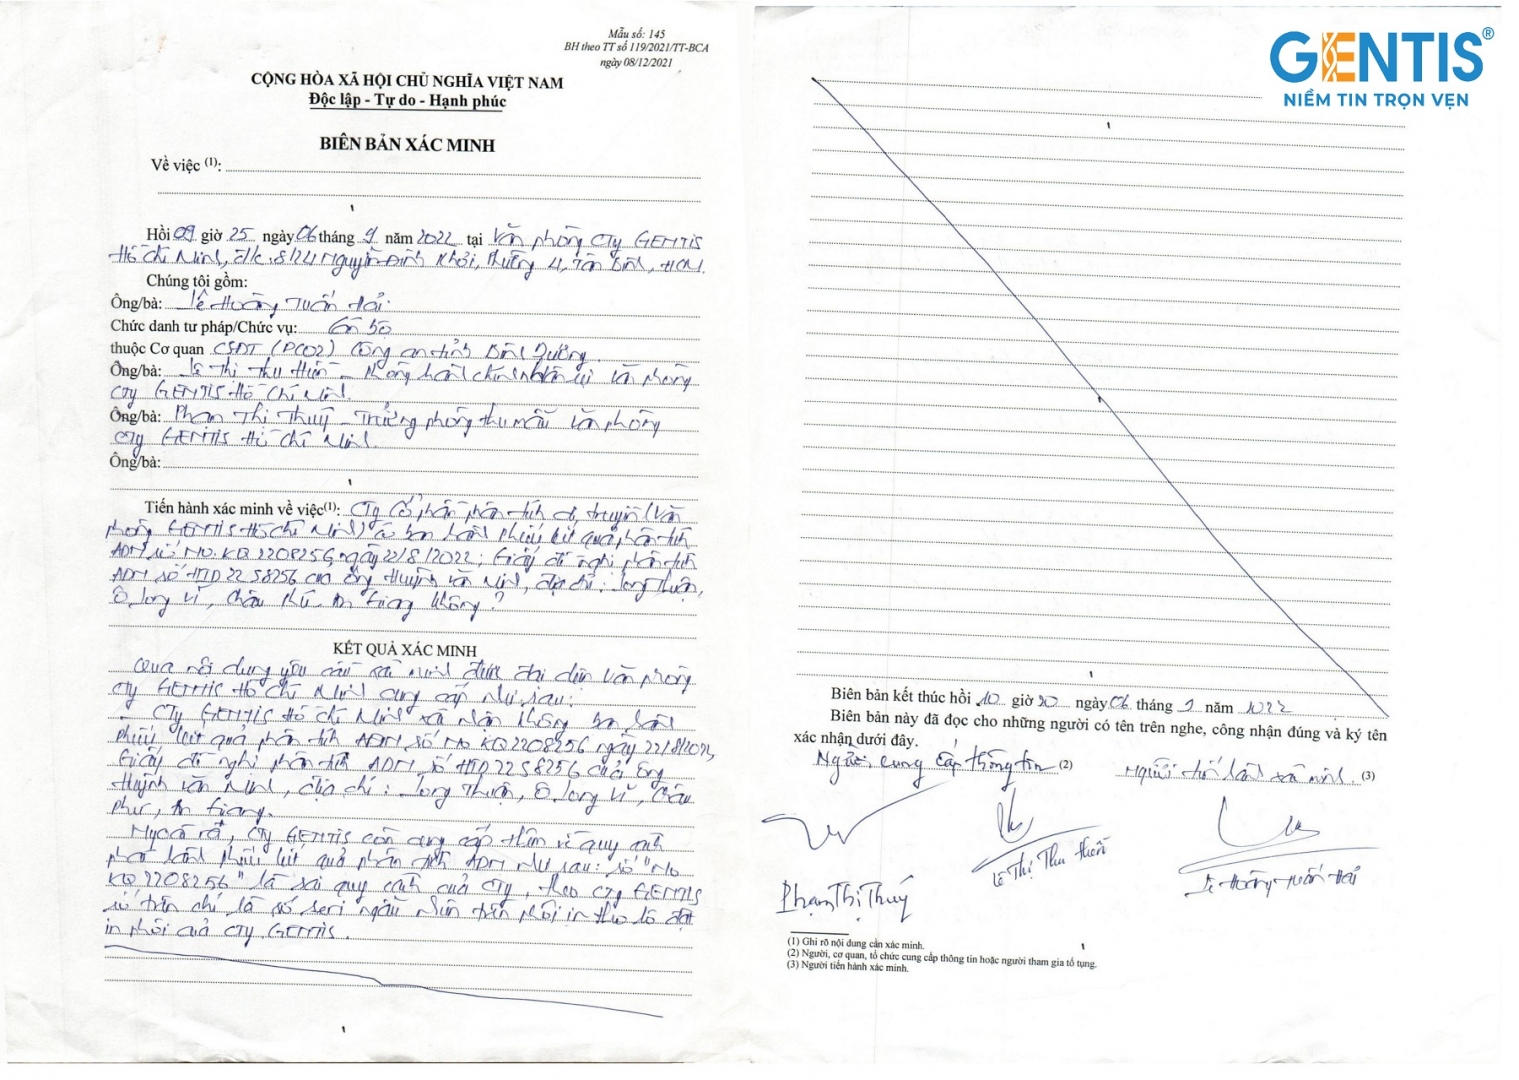 Mẫu số: 145
BH theo TT số 119/2021/TT-BCA
ngày 08/12/2021
CỘNG HÒA XÃ HỘI CHỦ NGHĨA VIỆT NAM
Độc lập - Tự do - Hạnh phúc
BIÊN BẢN XÁC MINH
Về việc (1):
Hồi 09 giờ 25 ngày 06 tháng 9 năm 2022 tại Văn phòng Cty GENTIS
Hồ Chí Minh, đ/c: 8/24 Nguyễn Đình Khơi, Phường 4, Tân Bình, HCM.
Chúng tôi gồm:
Ông/bà: Lê Hoàng Tuấn Hải
Chức danh tư pháp/Chức vụ: Cán bộ
thuộc Cơ quan CSĐT (PC02) Công an tỉnh Bình Dương
Ông/bà: Lê Thị Thu Hiền - Phòng hành chính nhân sự Văn phòng
Cty GENTIS Hồ Chí Minh.
Ông/bà: Phạm Thị Thuý - Trưởng phòng thu mẫu Văn phòng
Cty GENTIS Hồ Chí Minh.
Ông/bà:
Tiến hành xác minh về việc(1): Cty Cổ phần phân tích di truyền (Văn
phòng GENTIS Hồ Chí Minh) có ban hành phiếu kết quả phân tích
ADN số No.KQ2208256, ngày 22/8/2022; Giấy đề nghị phân tích
ADN số HID2258256 của ông Huỳnh Văn Minh, địa chỉ: Long Thuận,
Ô Long Vĩ, Châu Phú, An Giang không?
KẾT QUẢ XÁC MINH
Qua nội dung yêu cầu xác minh được đại diện Văn phòng
Cty GENTIS Hồ Chí Minh cung cấp như sau:
- Cty GENTIS Hồ Chí Minh xác nhận không ban hành
Phiếu kết quả phân tích ADN số No KQ2208256 ngày 22/8/2022,
Giấy đề nghị phân tích ADN số HID2258256 của ông
Huỳnh Văn Minh, địa chỉ: Long Thuận, Ô Long Vĩ, Châu
Phú, An Giang.
Ngoài ra, Cty GENTIS còn cung cấp thêm về quy cách
phát hành phiếu kết quả phân tích ADN như sau: số "No
KQ2208256" là sai quy cách của Cty, theo Cty GENTIS
số trên chỉ là số seri ngẫu nhiên trên phôi in theo lô đặt
in phôi của Cty GENTIS.
GENTIS®
NIỀM TIN TRỌN VẸN
Biên bản kết thúc hồi 10 giờ 30 ngày 06 tháng 9 năm 2022
Biên bản này đã đọc cho những người có tên trên nghe, công nhận đúng và ký tên
xác nhận dưới đây.
Người cung cấp thông tin (2) Người tiến hành xác minh (3)
Phạm Thị Thuý Lê Thị Thu Hiền Lê Hoàng Tuấn Hải
(1) Ghi rõ nội dung cần xác minh.
(2) Người, cơ quan, tổ chức cung cấp thông tin hoặc người tham gia tố tụng.
(3) Người tiến hành xác minh.